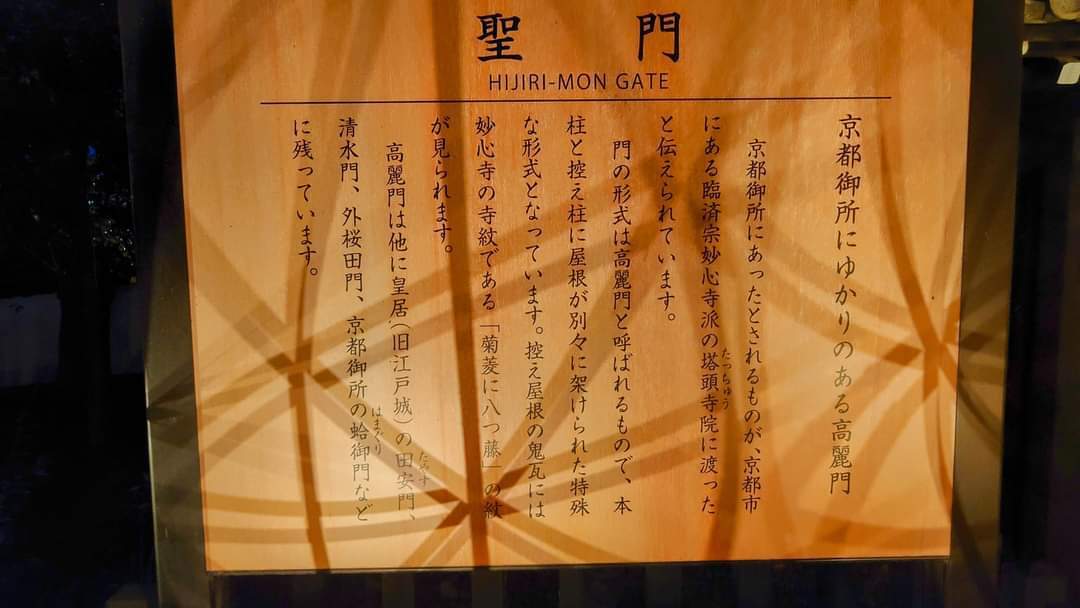 聖門
HIJIRI-MON GATE
京都御所にゆかりのある高麗門
京都御所にあったとされるものが、京都市
にある臨済宗妙心寺派の塔頭寺院に渡った
たっちゅう
と伝えられています。
門の形式は高麗門と呼ばれるもので、本
柱と控え柱に屋根が別々に架けられた特殊
な形式となっています。控え屋根の鬼瓦には
妙心寺の寺紋である「菊菱に八つ藤」の紋
が見られます。
高麗門は他に皇居(旧江戸城)の田安門、
たやす
清水門、外桜田門、京都御所の蛤御門など
はまぐり
に残っています。